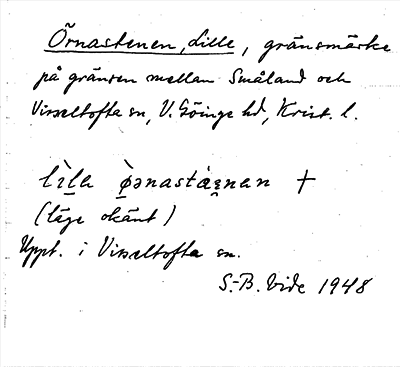 Örnastenen, Lille, gränsmärke
på gränsen mellan Småland och
Visseltofta sn, V. Göinge hd, Krist. l.
lìla ø̀ənastàẹnan †
(läge okänt)
Uppt. i Visseltofta sn.
S.-B. Vide 1948